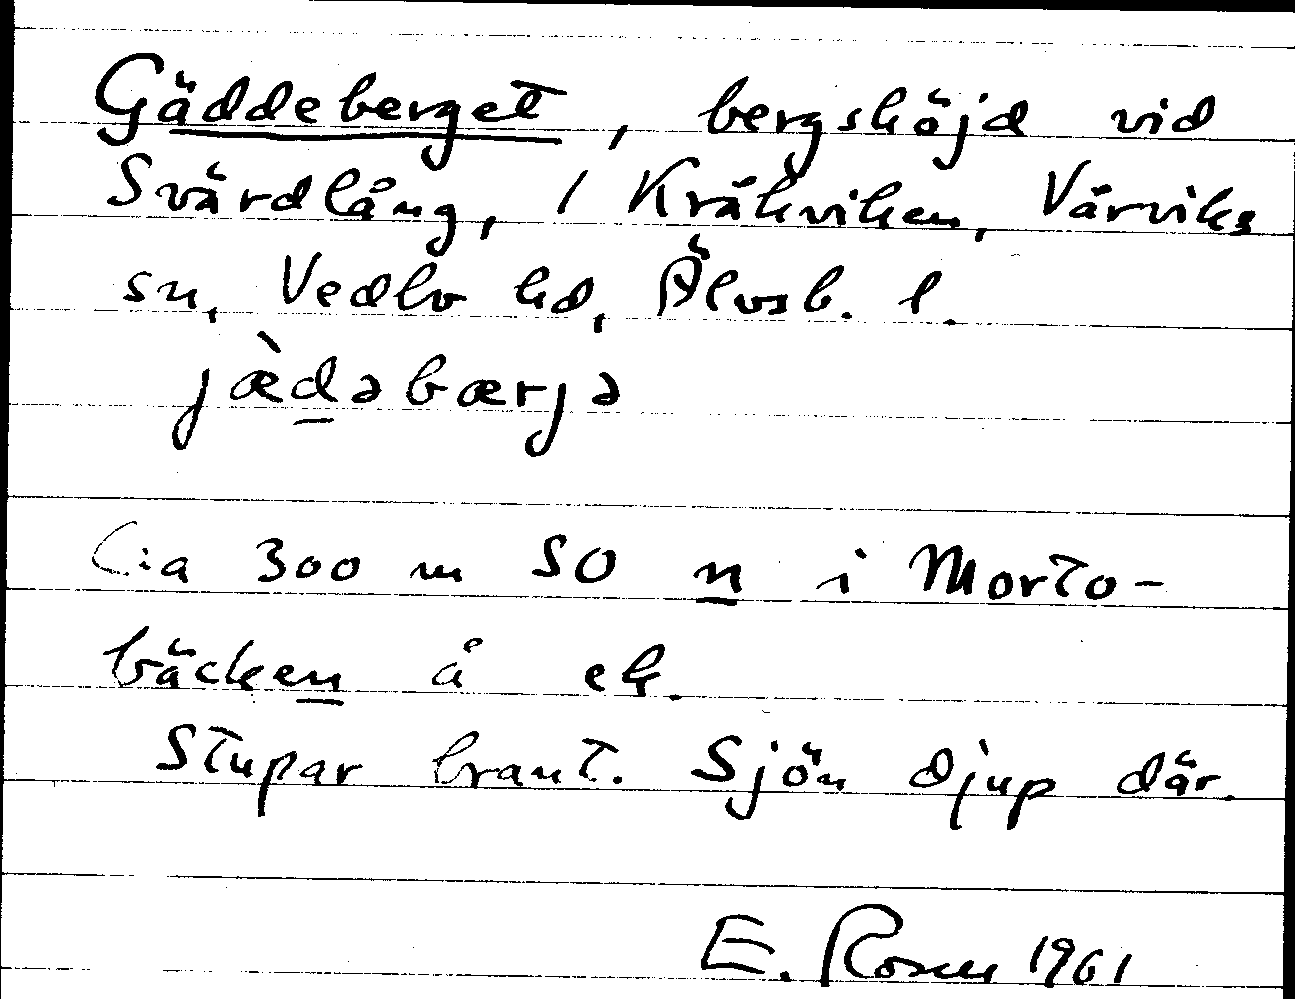 Gäddeberget, bergshöjd vid
Svärdlång, 1 Kråkviken, Värviks
sn, Vedbo hd, Älvsb. l.
jæ̀d̲əbærjə
C:a 300 m SO n i Morto-
bäcken å ek.
Stupar brant. Sjön djup där.
E. Rosen 1961